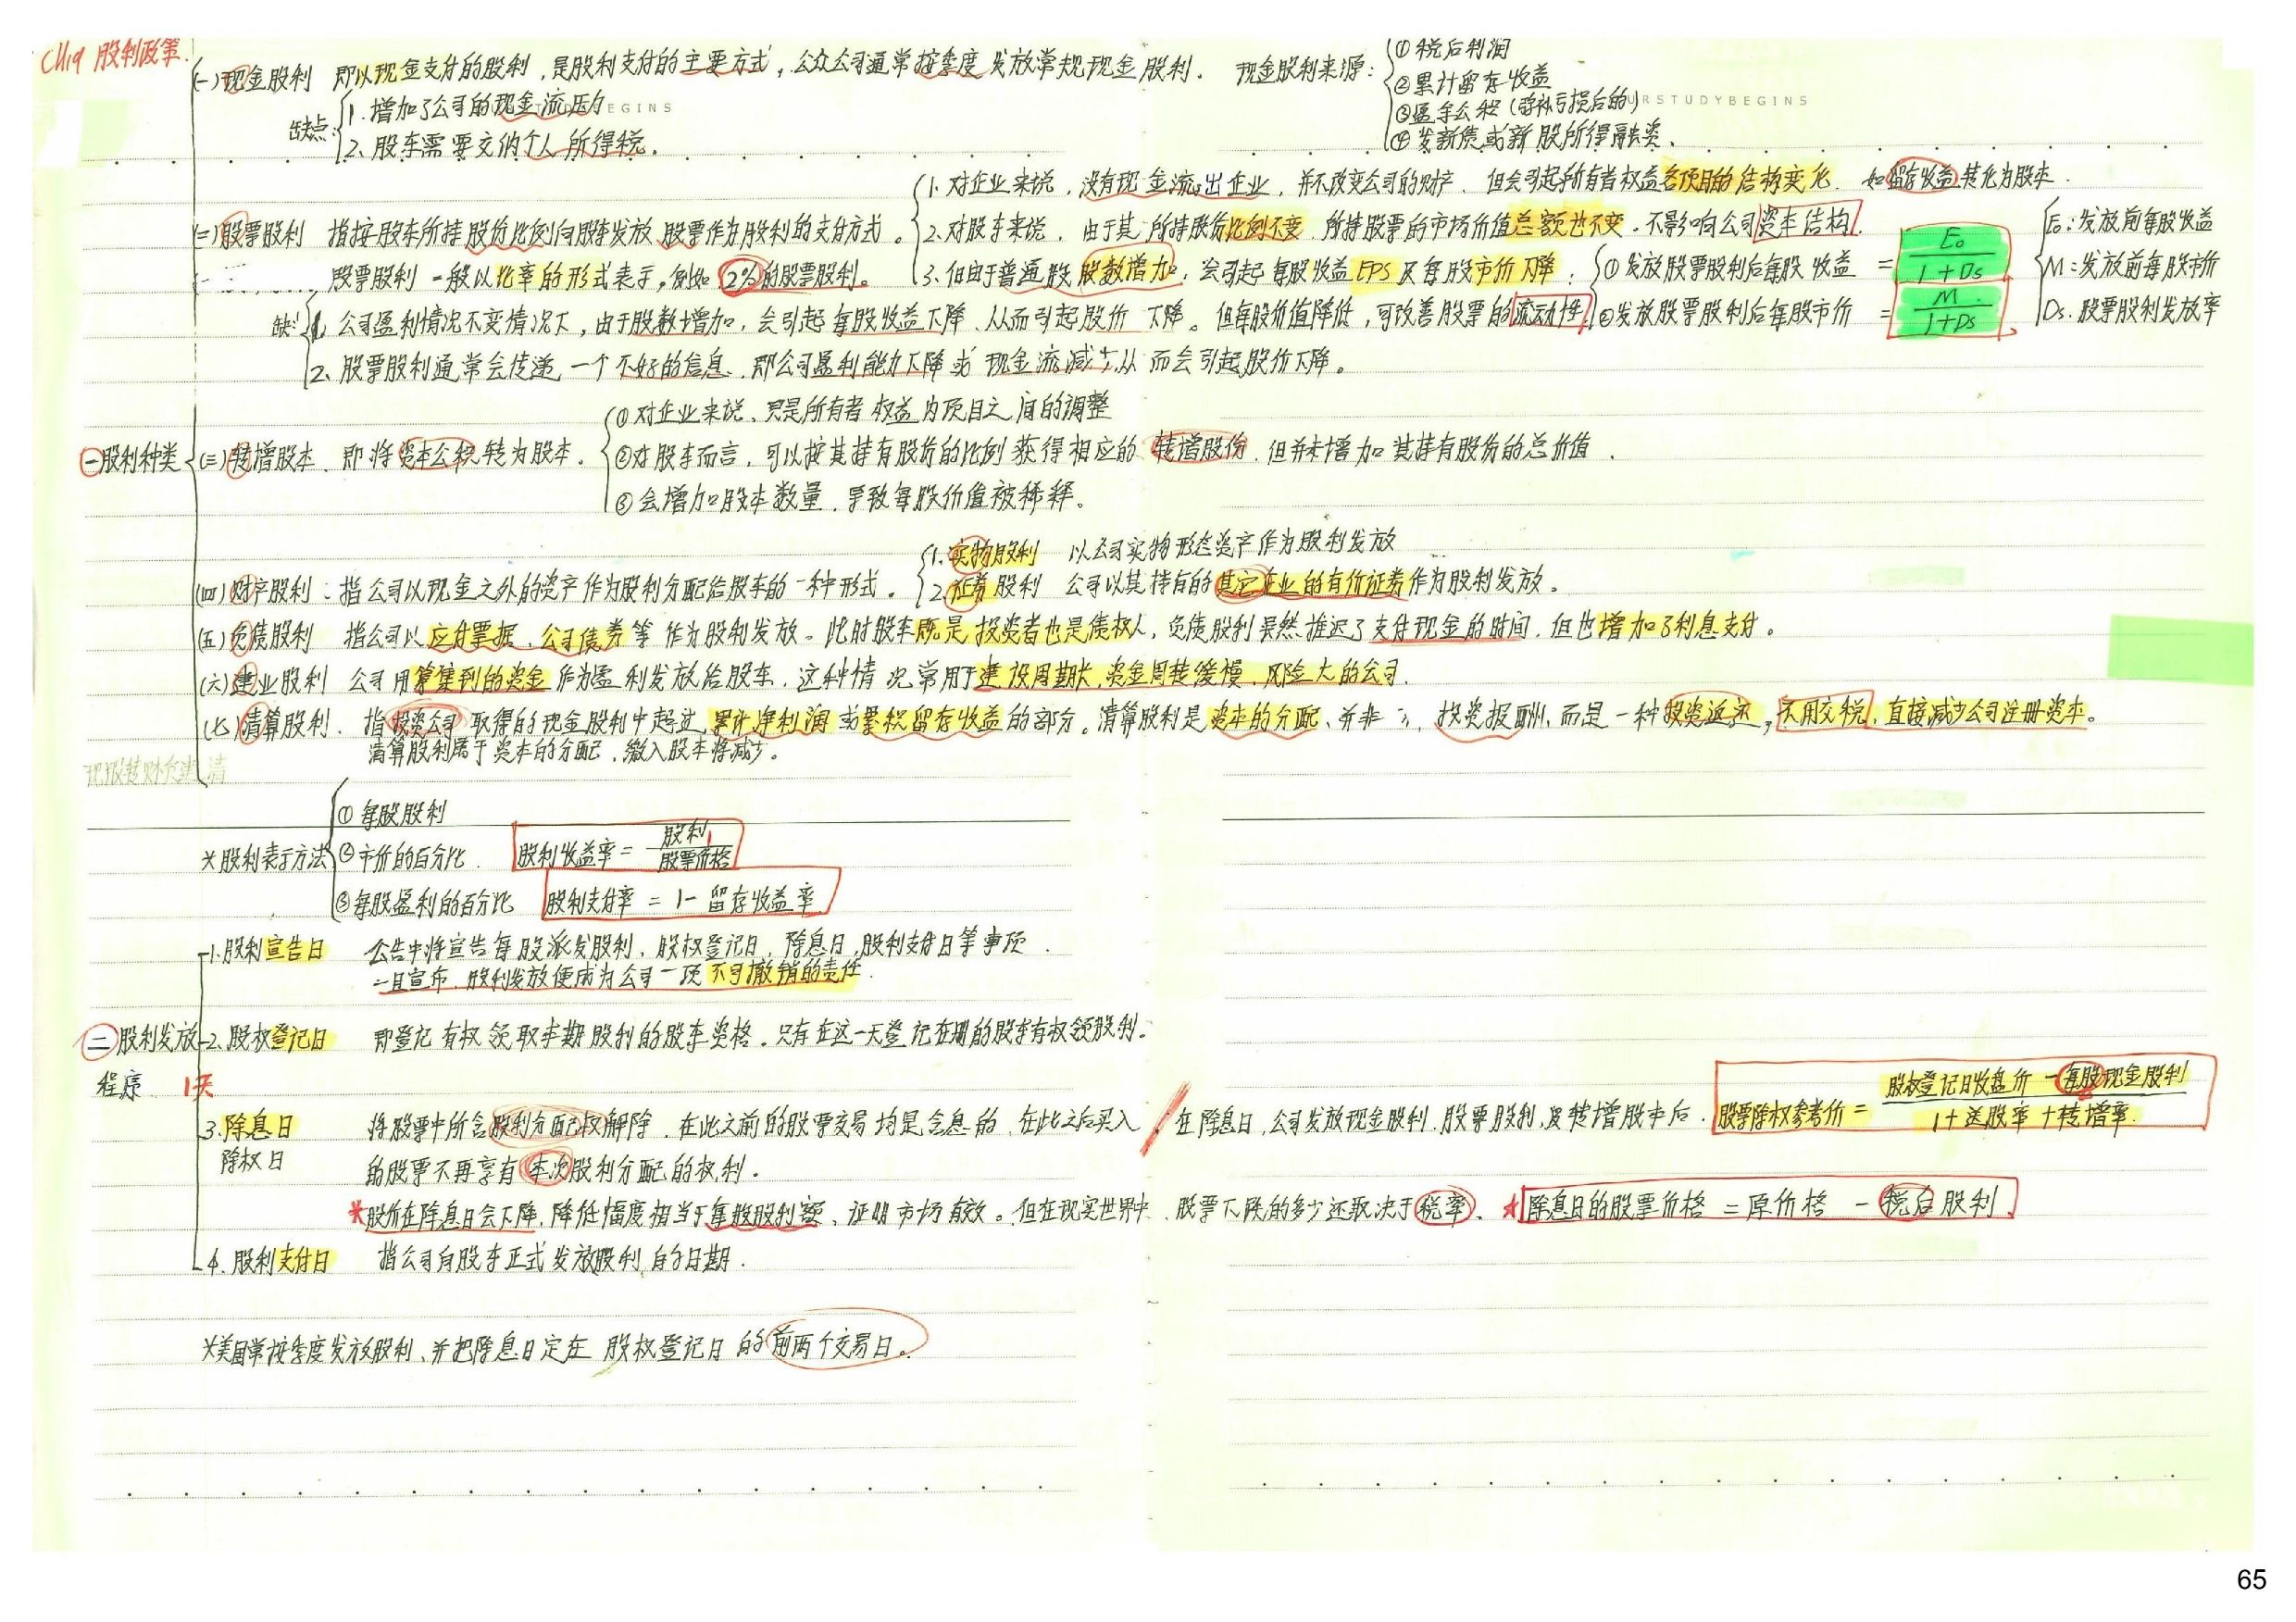 CH19 股利政策.
(一)现金股利 即以现金支付的股利,是股利支付的主要方式,公众公司通常按季度发放常规现金股利. 现金股利来源:
①税后利润
②累计留存收益
③盈余公积(弥补亏损后的)
④发新债或新股所得融资.
缺点:
1.增加了公司的现金流压力
2.股东需要交纳个人所得税.
EGINS
URSTUDYBEGINS
(二)股票股利 指按股东所持股份比例向股东发放股票作为股利的支付方式。
股票股利一般以比率的形式表示,例如2%的股票股利。
1.对企业来说,没有现金流出企业,并不改变公司的财产.但会引起所有者权益各项目的结构变化.如留存收益转化为股本.
2.对股东来说,由于其所持股份比例不变.所持股票的市场价值总额也不变.不影响公司资本结构.
3.但由于普通股股数增加,会引起每股收益EPS及每股市价下降.
①发放股票股利后每股收益 = E₀ / 1+Ds
②发放股票股利后每股市价 = M / 1+Ds
E₀:发放前每股收益
M:发放前每股市价
Ds.股票股利发放率
缺:
1.公司盈利情况不变情况下,由于股数增加,会引起每股收益下降.从而引起股价下降。但每股价值降低,可改善股票的流动性
2.股票股利通常会传递一个不好的信息.即公司盈利能力下降或现金流减少从而会引起股价下降。
㊀股利种类
(三)转增股本.即将资本公积转为股本.
①对企业来说、只是所有者权益内项目之间的调整
②对股东而言,可以按其持有股份的比例获得相应的转增股份.但并未增加其持有股份的总价值.
③会增加股本数量.导致每股价值被稀释。
(四)财产股利:指公司以现金之外的资产作为股利分配给股东的一种形式。
1.实物股利 以公司实物形态资产作为股利发放
2.证券股利 公司以其持有的其它企业的有价证券作为股利发放。
(五)负债股利 指公司以应付票据、公司债券等作为股利发放。此时股东既是投资者也是债权人,负债股利虽然推迟了支付现金的时间.但也增加了利息支付。
(六)建业股利 公司用筹集到的资金作为盈利发放给股东.这种情况常用于建设周期长.资金周转缓慢.风险大的公司.
(七)清算股利. 指投资公司取得的现金股利中超过累计净利润或累积留存收益的部分。清算股利是资本的分配、并非投资报酬,而是一种投资返还,不用交税,直接减少公司注册资本。
清算股利属于资本的分配,缴入股本将减少。
现股转财负建清
*股利表示方法
①每股股利
②市价的百分比. 股利收益率= 股利 / 股票价格
③每股盈利的百分比 股利支付率 = 1- 留存收益率
1.股利宣告日 公告中将宣告每股派发股利、股权登记日、除息日,股利支付日等事项.
一旦宣布.股利发放便成为公司一项不可撤销的责任.
㊁股利发放程序
2.股权登记日 即登记有权领取本期股利的股东资格.只有在这一天登记在册的股东有权领股利.
1天
3.除息日
除权日
将股票中所含股利分配权解除.在此之前的股票交易均是含息的.在此之后买入
的股票不再享有本次股利分配的权利.
在除息日,公司发放现金股利.股票股利,及转增股本后.
股票除权参考价= 股权登记日收盘价 - 每股现金股利 / 1+送股率+转增率.
*股价在除息日会下降,降低幅度相当于每股股利额、证明市场有效。但在现实世界中.股票下跌的多少还取决于税率. ★除息日的股票价格=原价格-税后股利.
4.股利支付日 指公司向股东正式发放股利的日期.
*美国常按季度发放股利、并把除息日定在股权登记日的前两个交易日。
65